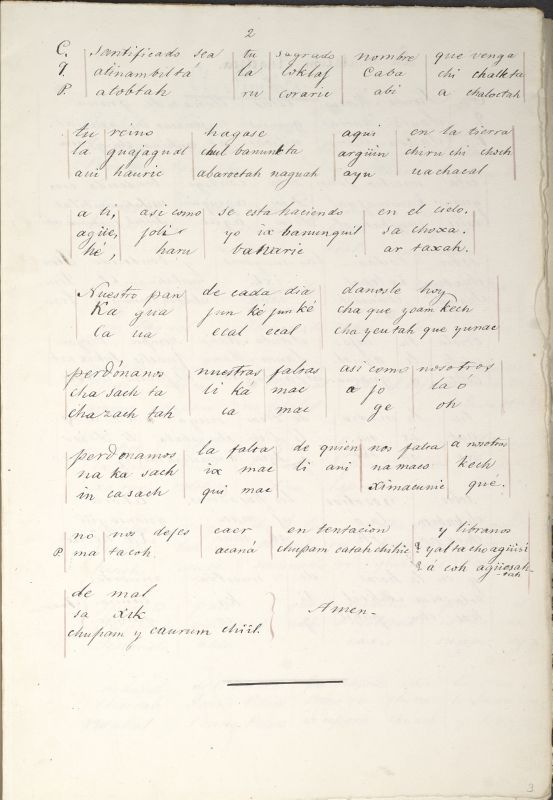 2
C. Santificado sea tu sagrado nombre que venga
Q. atinambiltá la loklaj caba chi chalkta
P. alobtah ru corarie abi a chaloctah
tu reino hagase aqui en la tierra
la guajagual chul banunta argüin chiru chi choch
aui haurie abaroctah naguah ayu uachacal
a ti, asi como se esta haciendo en el cielo.
agüe, joli yo ix banunquil sa choxa.
hé, haru banarie ar taxah.
Nuestro pan de cada dia danosle hoy
Ka gua jun ké jun ké cha que yoam kech
Ca ua ecal ecal cha yeu tah que yunac
perdónanos nuestras faltas asi como nosotros
cha sach ta li ká mac a jo la ó
cha zach tah ca mac ge oh
perdonamos la falta de quien nos falta á nosotros
na ka sach ix mac li ani na maco kech
in casach qui mac ximacunic que.
no nos dejes caer en tentacion y libranos
P. ma tacoh acaná chupam catah chihie yal ta cho agüisi
á coh agüesah-
tah
de mal
sa xik Amen-
chupam y caurum chiil.
3